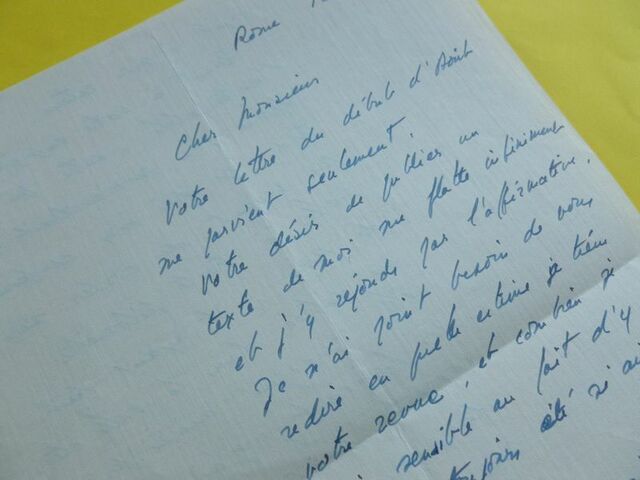 Rome
Cher Monsieur
Votre lettre du début d'Août
me parvient seulement.
Votre désir de publier un
texte de moi me flatte infiniment
et j'y réponds par l'affirmative.
Je n'ai point besoin de vous
redire en quelle estime je tiens
votre revue, et combien je
sensible au fait d'y
toujours été si